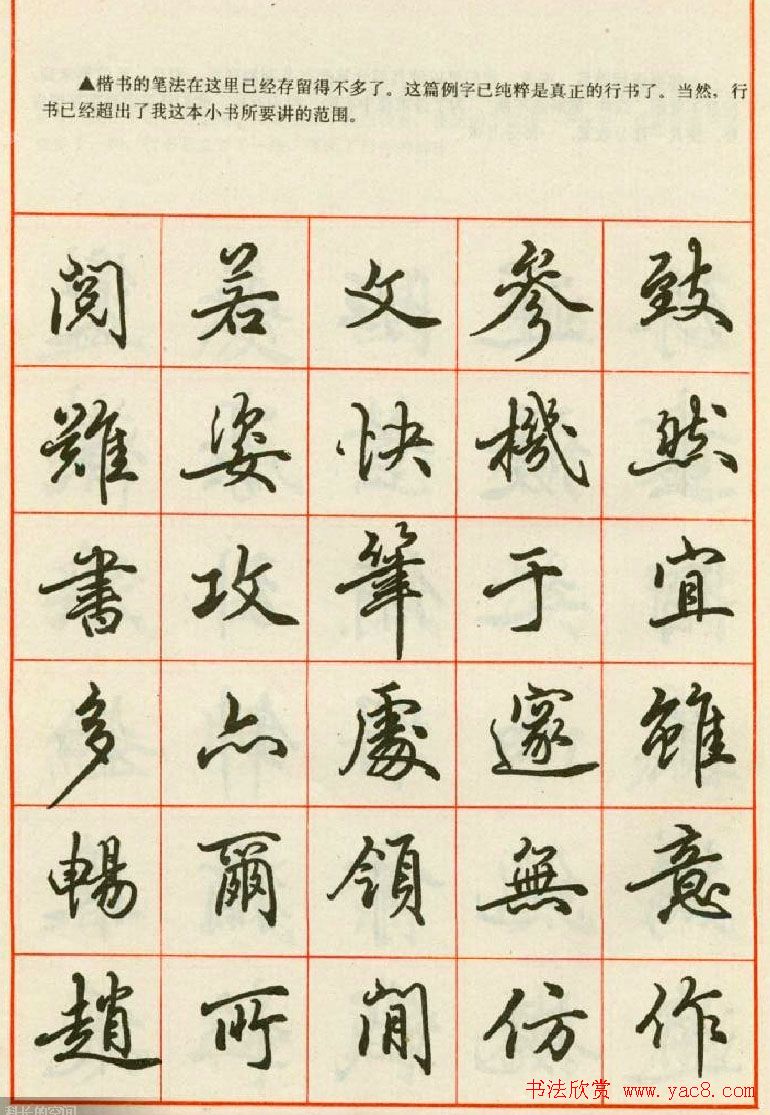 ▲楷书的笔法在这里已经存留得不多了。这篇例字已纯粹是真正的行书了。当然，行
书已经超出了我这本小书所要讲的范围。
致然宜雖意作
參機于邃無仿
文快筆處領間
若姿攻亦爾所
閱難書多暢趙
书法欣赏 www.yac8.com
科长的空间